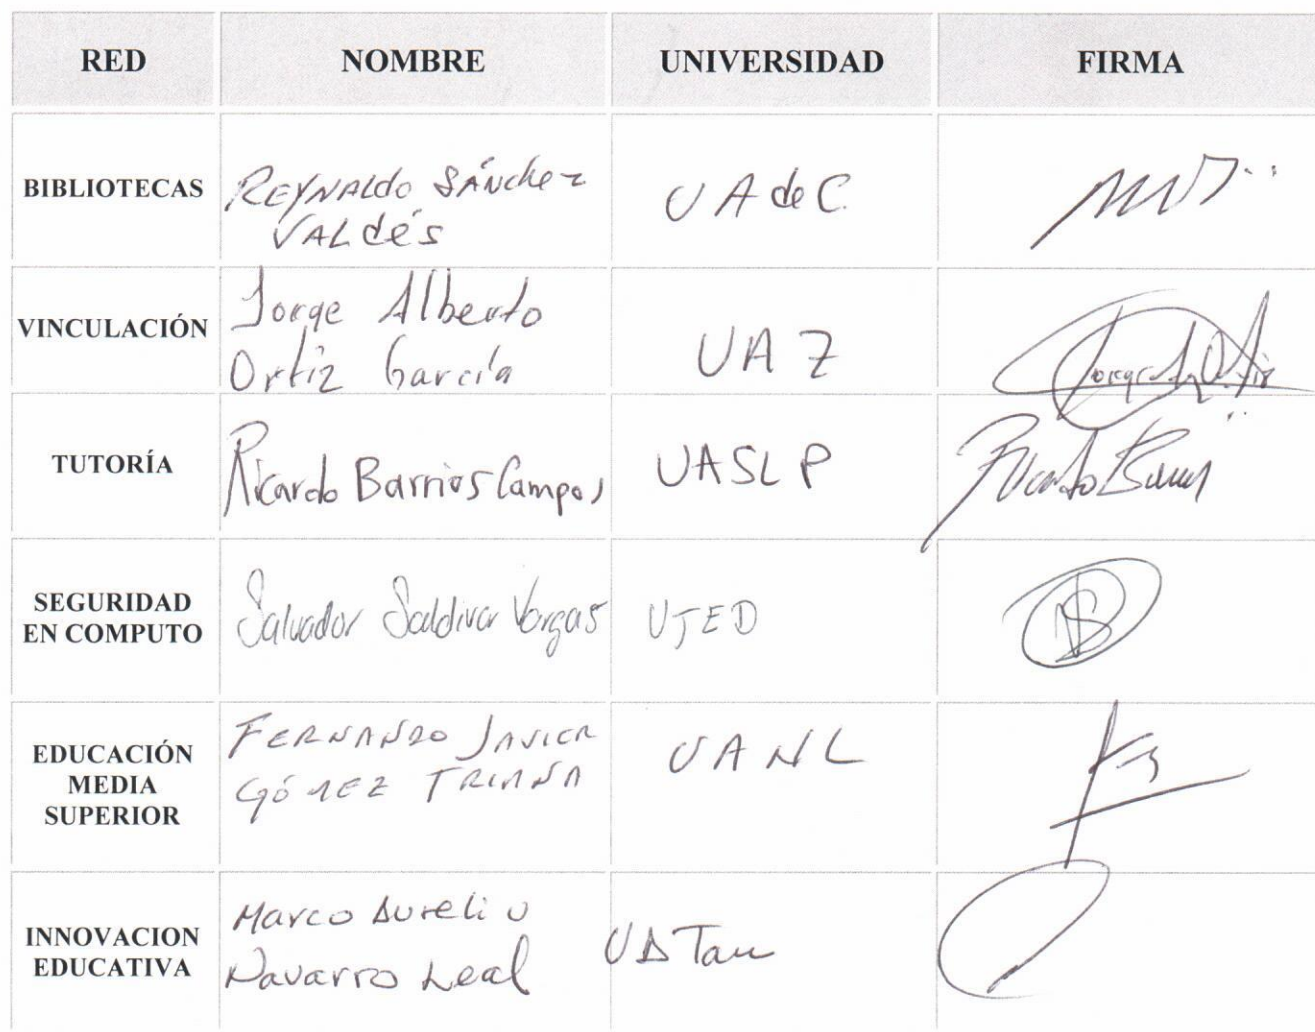 RED NOMBRE UNIVERSIDAD FIRMA
BIBLIOTECAS REYNALDO SÁNCHEZ
VALDÉS
UAdeC
VINCULACIÓN Jorge Alberto
Ortiz García
UAZ
TUTORÍA Ricardo Barrios Campos UASLP
Ricardo
SEGURIDAD
EN COMPUTO
Salvador Saldivar Vargas UJED
EDUCACIÓN
MEDIA
SUPERIOR
FERNANDO JAVIER
GÓMEZ TRIANA
UANL
INNOVACION
EDUCATIVA
Marco Aurelio
Navarro Leal
UATam